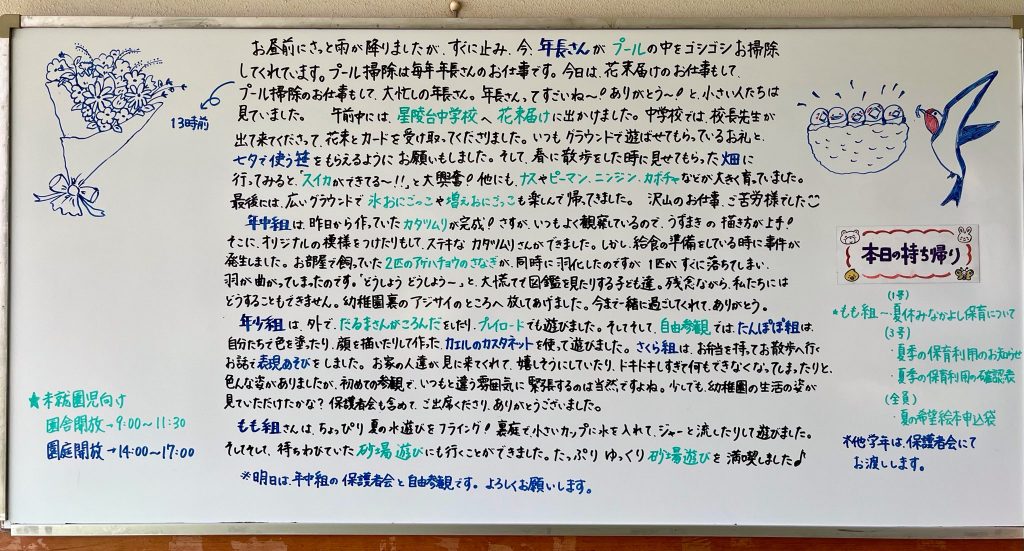 お昼前にさっと雨が降りましたが、すぐに止み、今、年長さんが プールの中をゴシゴシお掃除
してくれています。プール掃除は毎年年長さんのお仕事です。今日は、花束届けのお仕事もして、
プール掃除のお仕事もして、大忙しの年長さん。年長さんってすごいね〜!ありがとう〜!と、小さい人たちは
見ていました。 午前中には、星陵台中学校へ 花束届けに出かけました。中学校では、校長先生が
出て来てくださって、花束とカードを受け取ってくださりました。いつもグラウンドで遊ばせてもらっているお礼と、
七夕で使う笹をもらえるようにお願いもしました。そして、春に散歩をした時に見せてもらった畑に
行ってみると、「スイカができてる〜!!」と大興奮!他にも、ナスやピーマン、ニンジン、カボチャなどが大きく育っていました。
最後には、広いグラウンドで 氷おにごっこや増えおにごっこも楽しんで帰ってきました。 沢山のお仕事、ご苦労様でした
年中組は昨日から作っていたカタツムリが完成!さすが、いつもよく観察しているので、うずまきの描き方が上手!
そこに、オリジナルの模様をつけたりもして、ステキなカタツムリさんができました。しかし、給食の準備をしている時に事件が
発生しました。お部屋で飼っていた2匹のアゲハチョウのさなぎが、同時に羽化したのですが1匹がすぐに落ちてしまい、
羽が曲がってしまったのです。"どうしよう どうしよう〜"と、大慌てで図鑑を見たりする子ども達。残念ながら、私たちには
どうすることもできません。幼稚園裏のアジサイのところへ放してあげました。今まで一緒に過ごしてくれて、ありがとう。
年少組は、外で、だるまさんがころんだをしたり、プレイロードでも遊びました。そしてそして、自由参観では、たんぽぽ組は、
自分たちで色を塗ったり、顔を描いたりして作った、カエルのカスタネットを使って遊びました。さくら組は、お弁当を持ってお散歩へ行く
お話で表現あそびをしました。お家の人達が見に来てくれて、嬉しそうにしていたり、ドキドキしすぎて何もできなくなってしまったりと、
色んな姿がありましたが、初めての参観で、いつもと違う雰囲気に緊張するのは当然ですよね。少しでも、幼稚園の生活の姿が
見ていただけたかな?保護者会も含めて、ご出席くださり、ありがとうございました。
もも組さんは、ちょっぴり夏の水遊びをフライング!裏庭で、小さいカップに水を入れて、ジャーと流したりして遊びました。
そしてそして、待ちわびていた砂場遊びにも行くことができました。たっぷり ゆっくり 砂場遊びを満喫しました♪
※明日は、年中組の保護者会と自由参観です。よろしくお願いします。
13時前
★未就園児向け
園舎開放→9:00〜11:30
園庭開放→14:00〜17:00
本日の持ち帰り
(1号)
*もも組〜・夏休みなかよし保育について
(3号)
・夏季の保育利用のお知らせ
・夏季の保育利用の確認表
(全員)
・夏の希望絵本申込袋
*他学年は、保護者会にて
お渡しします。